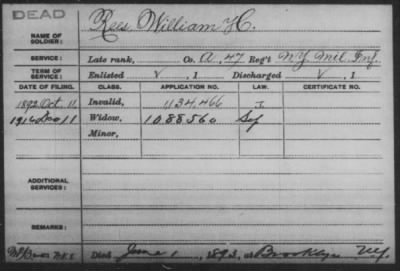 DEAD
NAME OF SOLDIER: Rees, William H.
SERVICE: Late rank, Co. A, 47 Reg't N.Y. Mil. Inf.
TERM OF SERVICE: Enlisted V, 1 Discharged V, 1
DATE OF FILING. CLASS. APPLICATION NO. LAW. CERTIFICATE NO.
1892 Oct. 11, Invalid, 1134,466 J.
1916 Dec 11 Widow, 1088560
Minor,
ADDITIONAL SERVICES:
REMARKS:
Died June 1, 1893, at Brooklyn N.Y.